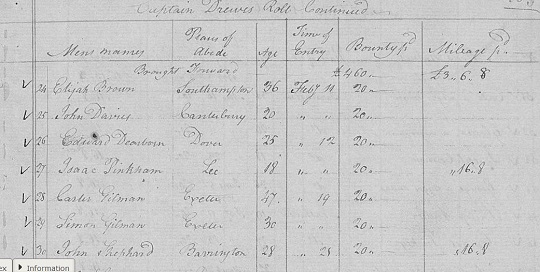 Captain Drewes Roll Continued
Mens names Places of Abode Age Time of Entry Bounty pd Mileage pd
Brought Forward £460" £3" 6" 8
24 Elijah Brown Southampton 36 Feby 11 20"
25 John Davies Canterbury 20 " " 20"
26 Edward Dearborn Dover 25 " 12 20"
27 Isaac Pinkham Lee 18 " " 20" " 16" 8
28 Carter Gilman Exeter 47 " 19 20"
29 Simon Gilman Exeter 30 " " 20"
30 John Shephard Barrington 28 " 28 20" " 16" 8
ex Information